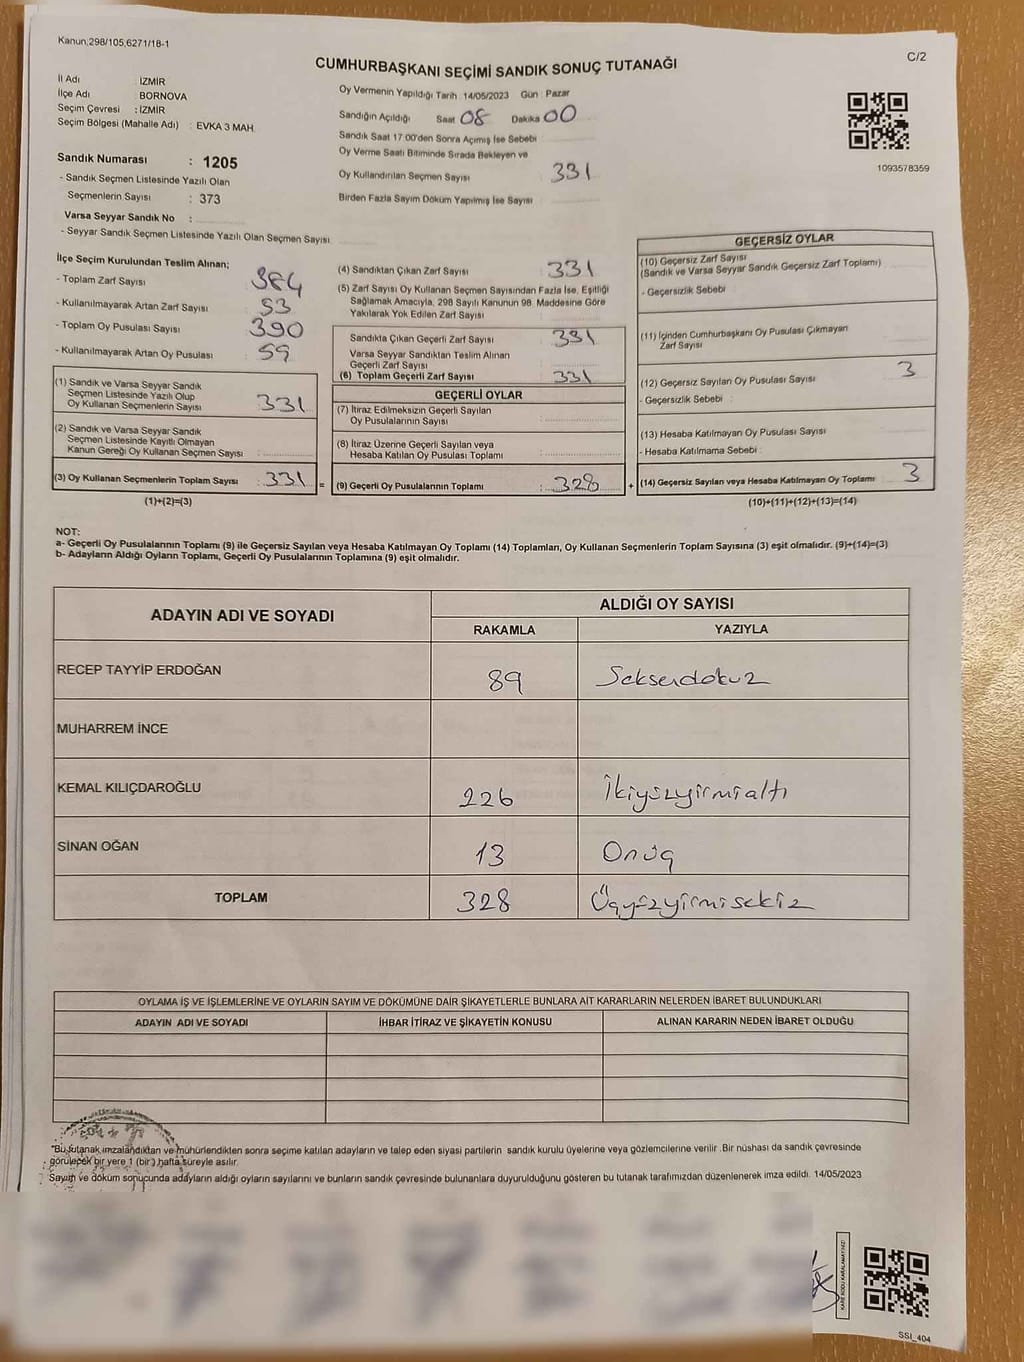 Kanun;298/105,6271/18-1
C/2
CUMHURBAŞKANI SEÇİMİ SANDIK SONUÇ TUTANAĞI
İl Adı : İZMİR
İlçe Adı : BORNOVA
Seçim Çevresi : İZMİR
Seçim Bölgesi (Mahalle Adı) : EVKA 3 MAH.
Sandık Numarası : 1205
- Sandık Seçmen Listesinde Yazılı Olan
Seçmenlerin Sayısı : 373
Varsa Seyyar Sandık No :
- Seyyar Sandık Seçmen Listesinde Yazılı Olan Seçmen Sayısı
Oy Vermenin Yapıldığı Tarih :14/05/2023 Gün : Pazar
Sandığın Açıldığı Saat 08 Dakika 00
Sandık Saat 17:00'den Sonra Açımış İse Sebebi
Oy Verme Saati Bitiminde Sırada Bekleyen ve
Oy Kullandırılan Seçmen Sayısı 331
Birden Fazla Sayım Döküm Yapılmış İse Sayısı
1093578359
İlçe Seçim Kurulundan Teslim Alınan;
- Toplam Zarf Sayısı 384
- Kullanılmayarak Artan Zarf Sayısı 53
- Toplam Oy Pusulası Sayısı 390
- Kullanılmayarak Artan Oy Pusulası 59
(1) Sandık ve Varsa Seyyar Sandık
Seçmen Listesinde Yazılı Olup
Oy Kullanan Seçmenlerin Sayısı : 331
(2) Sandık ve Varsa Seyyar Sandık
Seçmen Listesinde Kayıtlı Olmayan
Kanun Gereği Oy Kullanan Seçmen Sayısı :
(3) Oy Kullanan Seçmenlerin Toplam Sayısı : 331 =
(1)+(2)=(3)
(4) Sandıktan Çıkan Zarf Sayısı 331
(5) Zarf Sayısı Oy Kullanan Seçmen Sayısından Fazla İse, Eşitliği
Sağlamak Amacıyla, 298 Sayılı Kanunun 98. Maddesine Göre
Yakılarak Yok Edilen Zarf Sayısı
Sandıkta Çıkan Geçerli Zarf Sayısı 331
Varsa Seyyar Sandıktan Teslim Alınan
Geçerli Zarf Sayısı
(6) Toplam Geçerli Zarf Sayısı 331
GEÇERLİ OYLAR
(7) İtiraz Edilmeksizin Geçerli Sayılan
Oy Pusulalarının Sayısı
(8) İtiraz Üzerine Geçerli Sayılan veya
Hesaba Katılan Oy Pusulası Toplamı
(9) Geçerli Oy Pusulalarının Toplamı : 328 +
GEÇERSİZ OYLAR
(10) Geçersiz Zarf Sayısı
(Sandık ve Varsa Seyyar Sandık Geçersiz Zarf Toplamı)
- Geçersizlik Sebebi
(11) İçinden Cumhurbaşkanı Oy Pusulası Çıkmayan
Zarf Sayısı
(12) Geçersiz Sayılan Oy Pusulası Sayısı 3
- Geçersizlik Sebebi :
(13) Hesaba Katılmayan Oy Pusulası Sayısı
- Hesaba Katılmama Sebebi :
(14) Geçersiz Sayılan veya Hesaba Katılmayan Oy Toplamı : 3
(10)+(11)+(12)+(13)=(14)
NOT:
a- Geçerli Oy Pusulalarının Toplamı (9) ile Geçersiz Sayılan veya Hesaba Katılmayan Oy Toplamı (14) Toplamları, Oy Kullanan Seçmenlerin Toplam Sayısına (3) eşit olmalıdır. (9)+(14)=(3)
b- Adayların Aldığı Oyların Toplamı, Geçerli Oy Pusulalarının Toplamına (9) eşit olmalıdır.
ADAYIN ADI VE SOYADI
ALDIĞI OY SAYISI
RAKAMLA YAZIYLA
RECEP TAYYİP ERDOĞAN 89 Seksendokuz
MUHARREM İNCE
KEMAL KILIÇDAROĞLU 226 İkiyüzyirmialtı
SİNAN OĞAN 13 Onüç
TOPLAM 328 Üçyüzyirmisekiz
OYLAMA İŞ VE İŞLEMLERİNE VE OYLARIN SAYIM VE DÖKÜMÜNE DAİR ŞİKAYETLERLE BUNLARA AİT KARARLARIN NELERDEN İBARET BULUNDUKLARI
ADAYIN ADI VE SOYADI İHBAR İTİRAZ VE ŞİKAYETİN KONUSU ALINAN KARARIN NEDEN İBARET OLDUĞU
*Bu tutanak imzalandıktan ve mühürlendikten sonra seçime katılan adayların ve talep eden siyasi partilerin sandık kurulu üyelerine veya gözlemcilerine verilir. Bir nüshası da sandık çevresinde
görülecek bir yere 1 (bir) hafta süreyle asılır.
Sayım ve döküm sonucunda adayların aldığı oyların sayılarını ve bunların sandık çevresinde bulunanlara duyurulduğunu gösteren bu tutanak tarafımızdan düzenlenerek imza edildi. 14/05/2023
KARE KODU KARALAMAYINIZ!
SSI_404